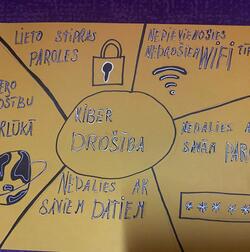 LIETO STIPRAS
PAROLES
NEPIEVIENOJIES
NEDROŠIEM WIFI
ĶIBER
DROŠĪBA
NEDALIES AR
SAVĀM
NEDALIES AR
SAVIEM DATIEM
*****